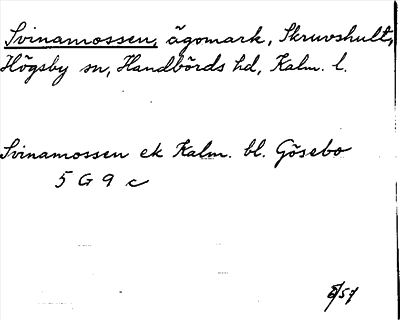 Svinamossen, ägomark, Skruvshult,
Högsby sn, Handbörds hd, Kalm. l.
Svinamossen ek Kalm. bl. Gösebo
5 G 9 c